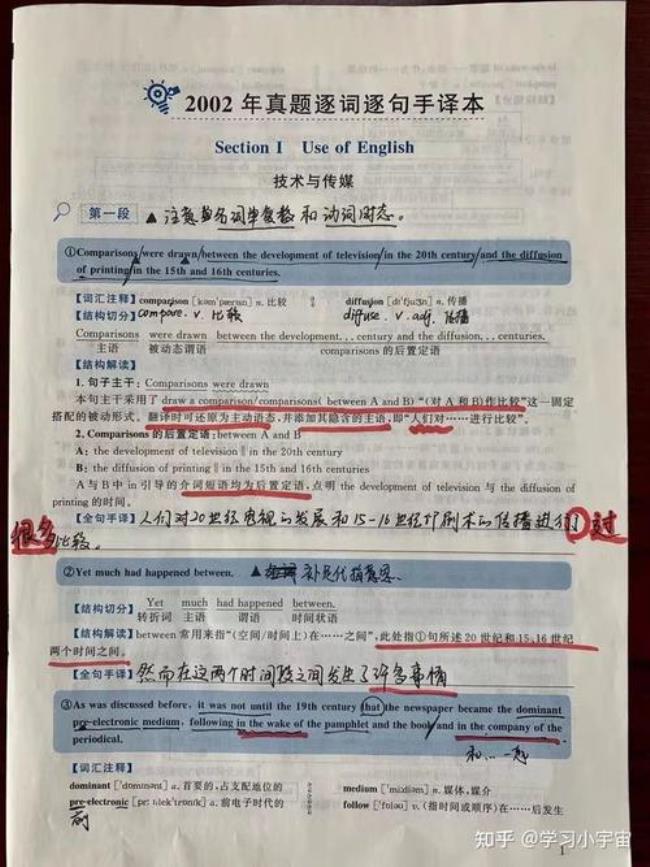 2002 年真题逐词逐句手译本
Section I Use of English
技术与传媒
第一段 ▲ 注意名词单复数和动词时态。
①Comparisons/were drawn/between the development of television/in the 20th century/and the diffusion
of printing/in the 15th and 16th centuries.
【词汇注释】comparison [kəmˈpærɪsn] n. 比较 diffusion [dɪˈfjuːʒn] n. 传播
【结构切分】compare. v. 比较 diffuse. v. adj. 传播
Comparisons were drawn between the development... century and the diffusion... centuries.
主语 被动态谓语 comparisons 的后置定语
【结构解读】
1. 句子主干：Comparisons were drawn
本句主干采用了 draw a comparison/comparisons( between A and B) “(对 A 和 B)作比较”这一固定
搭配的被动形式。翻译时可还原为主动语态，并添加其隐含的主语，即“人们对……进行比较”。
2. Comparisons 的后置定语：between A and B
A: the development of television ‖ in the 20th century
B: the diffusion of printing ‖ in the 15th and 16th centuries
A 与 B 中 in 引导的介词短语均为后置定语，点明 the development of television 与 the diffusion of
printing 的时间。
【全句手译】人们对20世纪电视的发展和15-16世纪印刷术的传播进行了过
很多比较。
②Yet much had happened between. ▲ 补充代指意思。
【结构切分】Yet much had happened between.
转折词 主语 谓语 时间状语
【结构解读】between 常用来指“(空间/时间上)在……之间”，此处指①句所述 20 世纪和 15、16 世纪
两个时间之间。
【全句手译】然而在这两个时间段之间发生了许多事情
③As was discussed before, it was not until the 19th century that the newspaper became the dominant
pre-electronic medium, following in the wake of the pamphlet and the book/and in the company of the
periodical.
和...一起
【词汇注释】
dominant [ˈdɒmɪnənt] a. 首要的，占支配地位的 medium [ˈmiːdiəm] n. 媒体，媒介
pre-electronic [priːɪˌlekˈtrɒnɪk] a. 前电子时代的 follow [ˈfɒləʊ] v. (指时间或顺序)在……后发生
前
知乎 @学习小宇宙
1